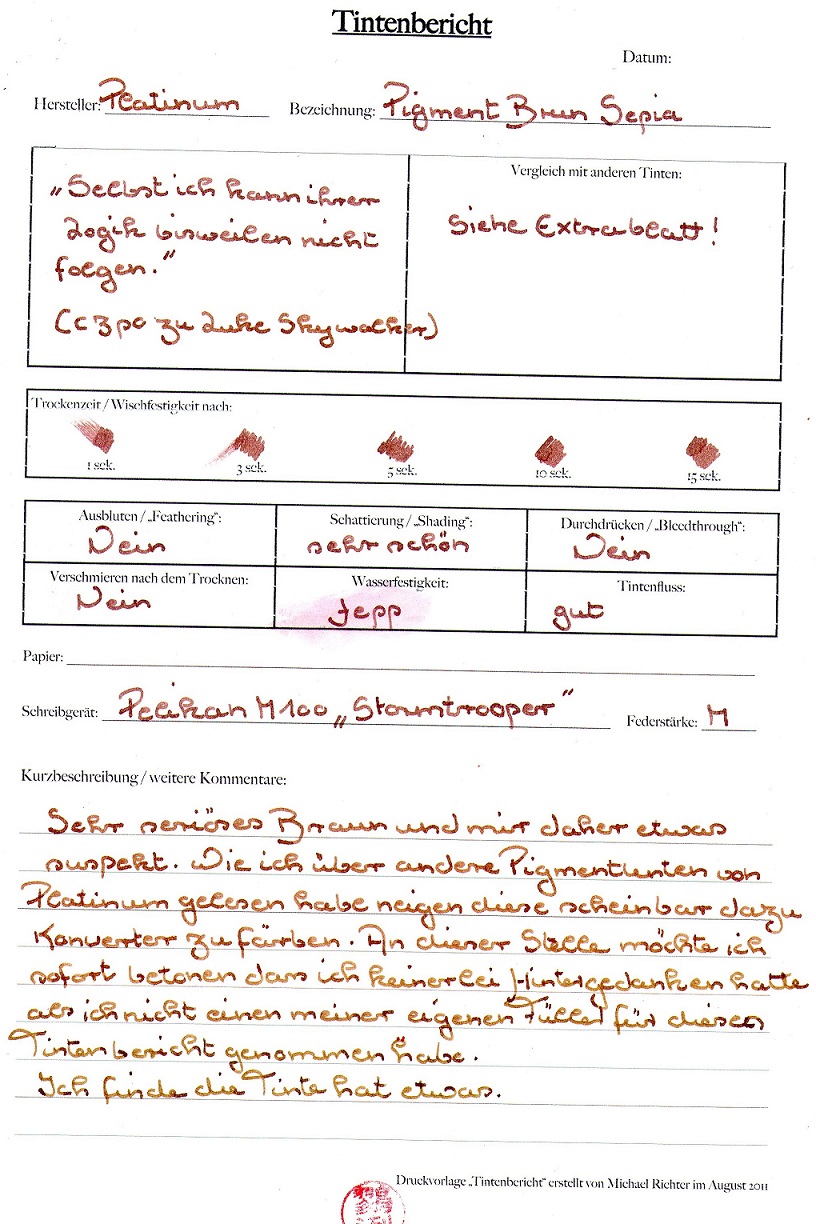 Tintenbericht
Datum:
Hersteller: Platinum Bezeichnung: Pigment Brun Sepia
"Selbst ich kann ihrer
Logik bisweilen nicht
folgen."
(c3po zu Luke Skywalker)
Vergleich mit anderen Tinten:
Siehe Extrablatt!
Trockenzeit / Wischfestigkeit nach:
1 sek. 3 sek. 5 sek. 10 sek. 15 sek.
Ausbluten / „Feathering": Schattierung / „Shading": Durchdrücken / „Bleedthrough":
Nein sehr schön Nein
Verschmieren nach dem Trocknen: Wasserfestigkeit: Tintenfluss:
Nein Jepp gut
Papier:
Schreibgerät: Pelikan M100 „Stormtrooper" Federstärke: M
Kurzbeschreibung / weitere Kommentare:
Sehr seriöses Braun und mir daher etwas
suspekt. Wie ich über andere Pigmenttinten von
Platinum gelesen habe neigen diese scheinbar dazu
Konverter zu färben. An dieser Stelle möchte ich
sofort betonen dass ich keinerlei Hintergedanken hatte
als ich nicht einen meiner eigenen Füller für diesen
Tintenbericht genommen habe.
Ich finde die Tinte hat etwas.
Druckvorlage „Tintenbericht" erstellt von Michael Richter im August 2011